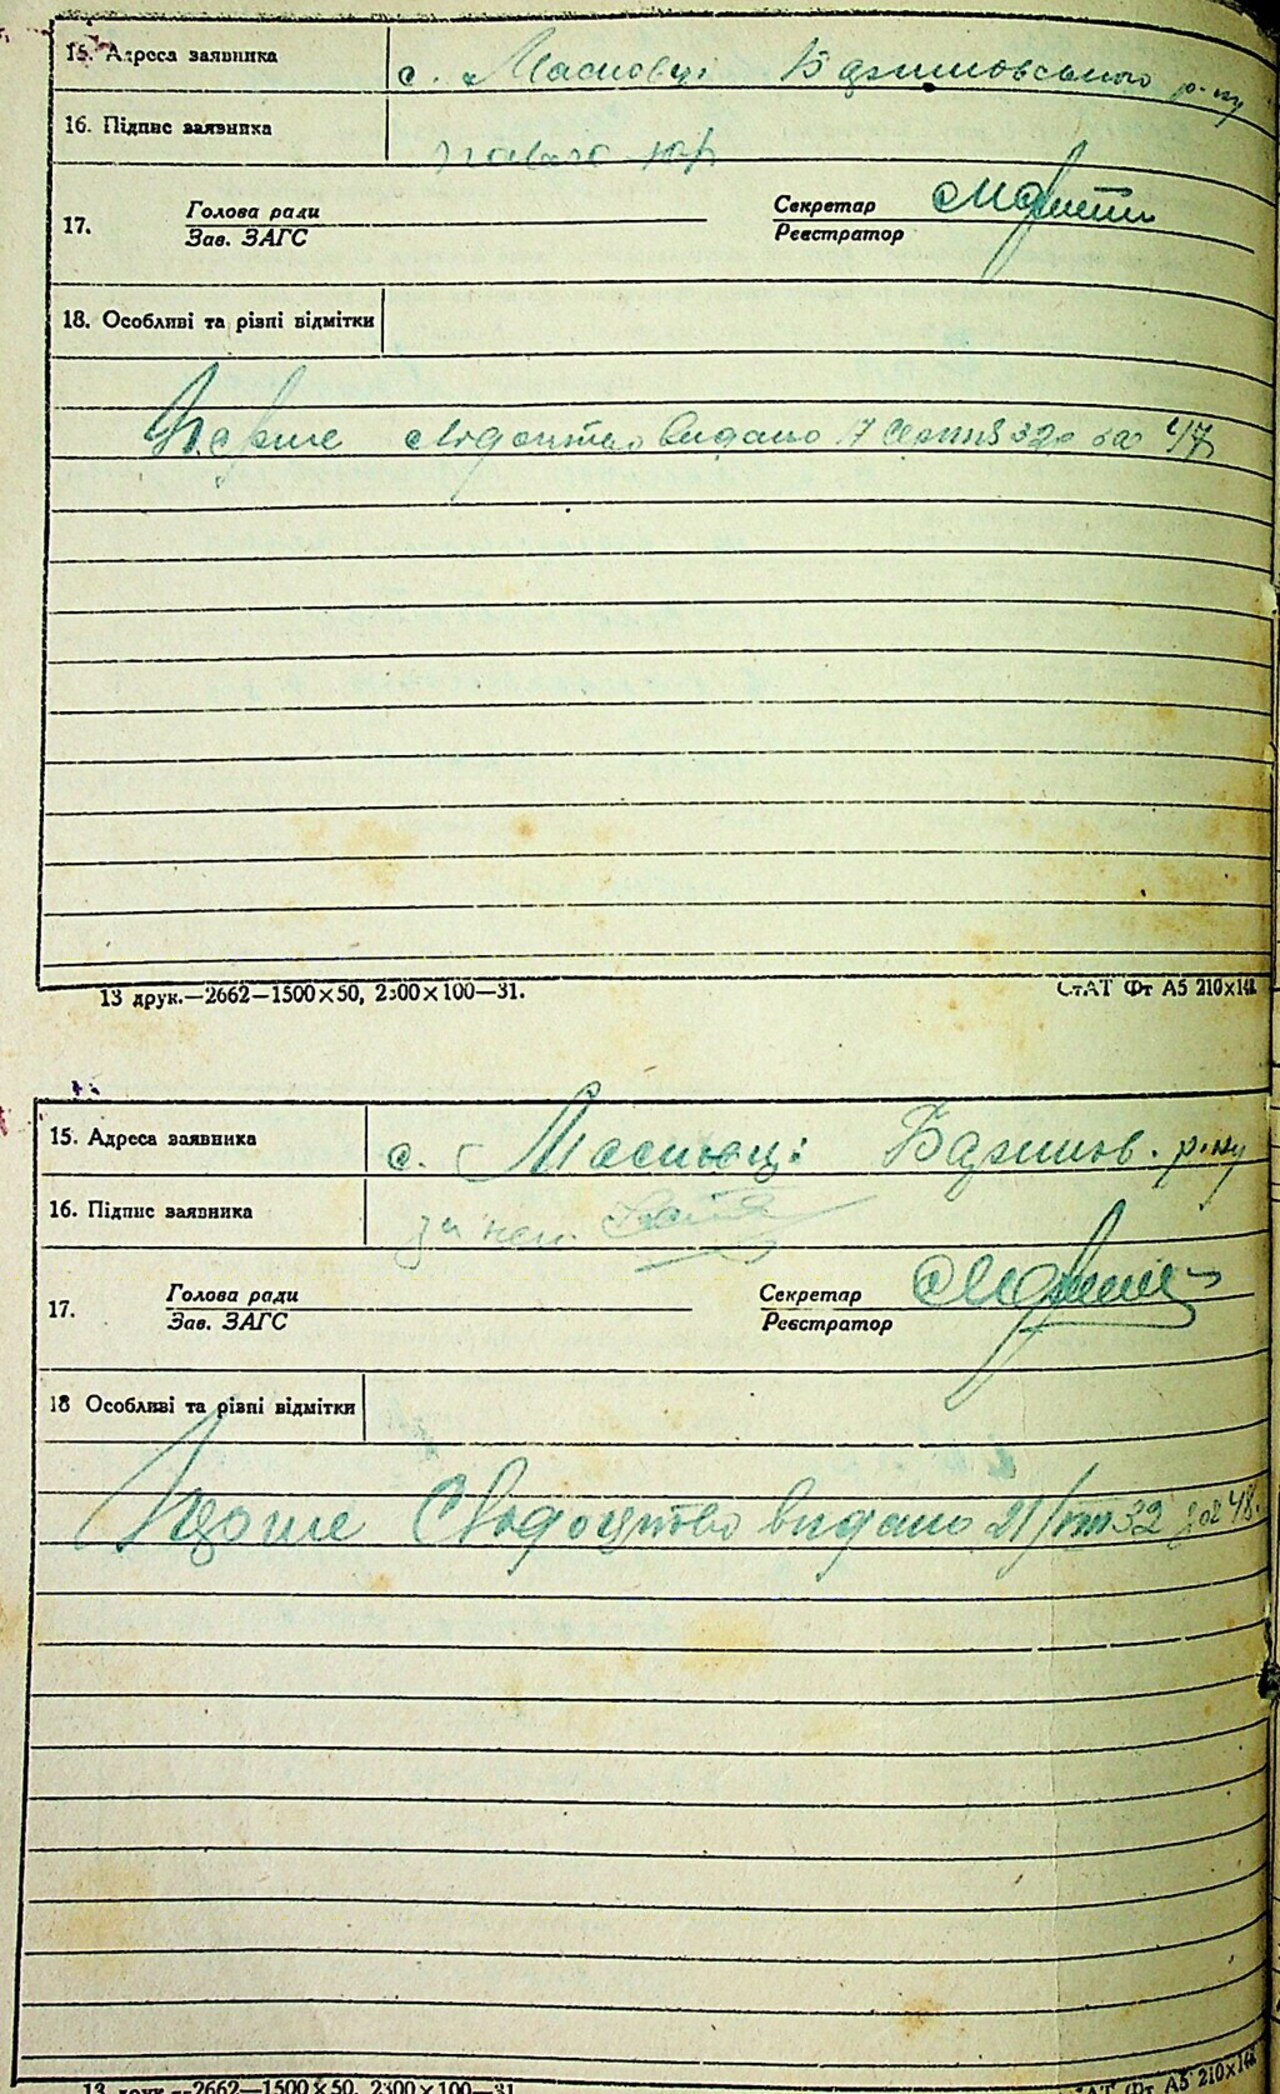 15. Адреса заявника с. Масковці Баришовського р-ну
16. Підпис заявника
17. Голова ради Секретар
Зав. ЗАГС Реєстратор
18. Особливі та різні відмітки
Перше свідоцтво видано 17 серпня 32р за 47
13 друк.—2662—1500×50, 2300×100—31.
СтАТ Фт А5 210×148
15. Адреса заявника с. Масковці Баришов. р-ну
16. Підпис заявника за неп.
17. Голова ради Секретар
Зав. ЗАГС Реєстратор
18 Особливі та різні відмітки
Перше Свідоцтво видано 21/VIII 32 за 48.
13 друк.—2662—1500×50, 2300×100—31.
АТ Фт А5 210×148